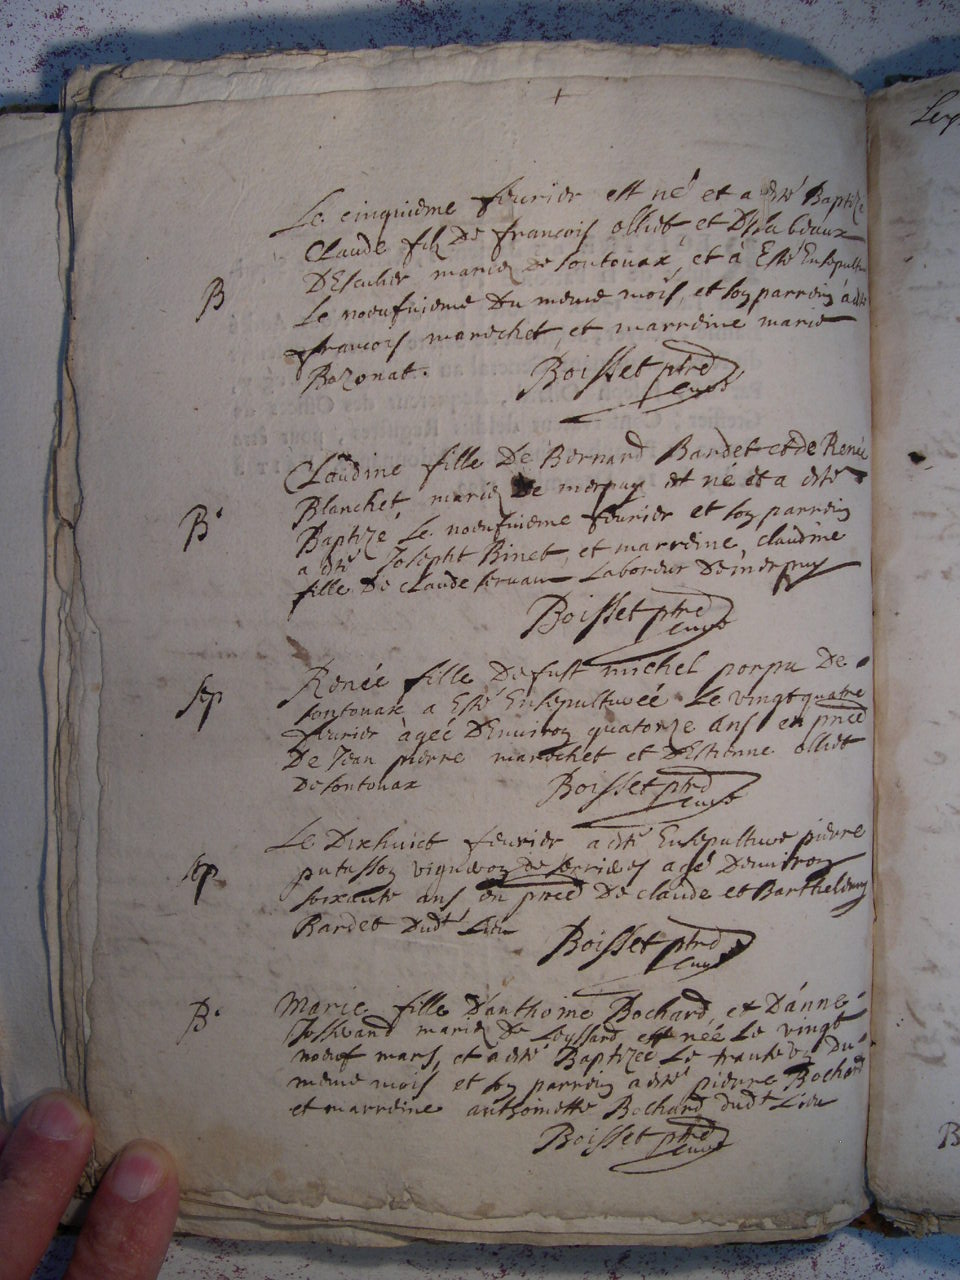 Le cinquieme feurier est né et a esté Baptizé
Claude filz De francois olliet et Dysabeaux
DEscuher mariez de sontonax, et à Esté Ensepultu
B
Le noeufuieme Du meme mois, et son parrein a esté
francois marechet, et marreine marie
Bozonat.
Boisset ptre
curé
Claudine fille De Bernard Bardet et de Renée
Blanchet mariez De merpuy et né et a esté
B.
Baptizé Le noeufuieme feurier et son parrein
a esté Josepht Binet, et marreine, claudine
fille De claude Laboreur De merpuy
Boisset ptre
curé
Renée fille De fust michel porpu De
sep
sontonax a Esté Ensepultureé Le vingt quatre
feurier àgeé DEnuiron quatorze ans en pnce
De Jean pierre marechet et DEstienne olliet
De sontonax
Boisset ptre
curé
Le Dixhuict feurier a esté Ensepulture pierre
sep
putusson vigneron de serrieres agé Denuiron
soixante ans en pnce De claude et Barthelemy
Bardet Dudt Lieu
Boisset ptre
curé
B.
Marie fille D'anthoine Bochard, et D'anne
mariez De Leyssard est neé Le vingt
noeuf mars, et a esté Baptizeé Le trante un Du
meme mois et son parrein a esté pierre Bochard
et marreine anthoinette Bochard dudt Lieu
Boisset ptre
curé
B